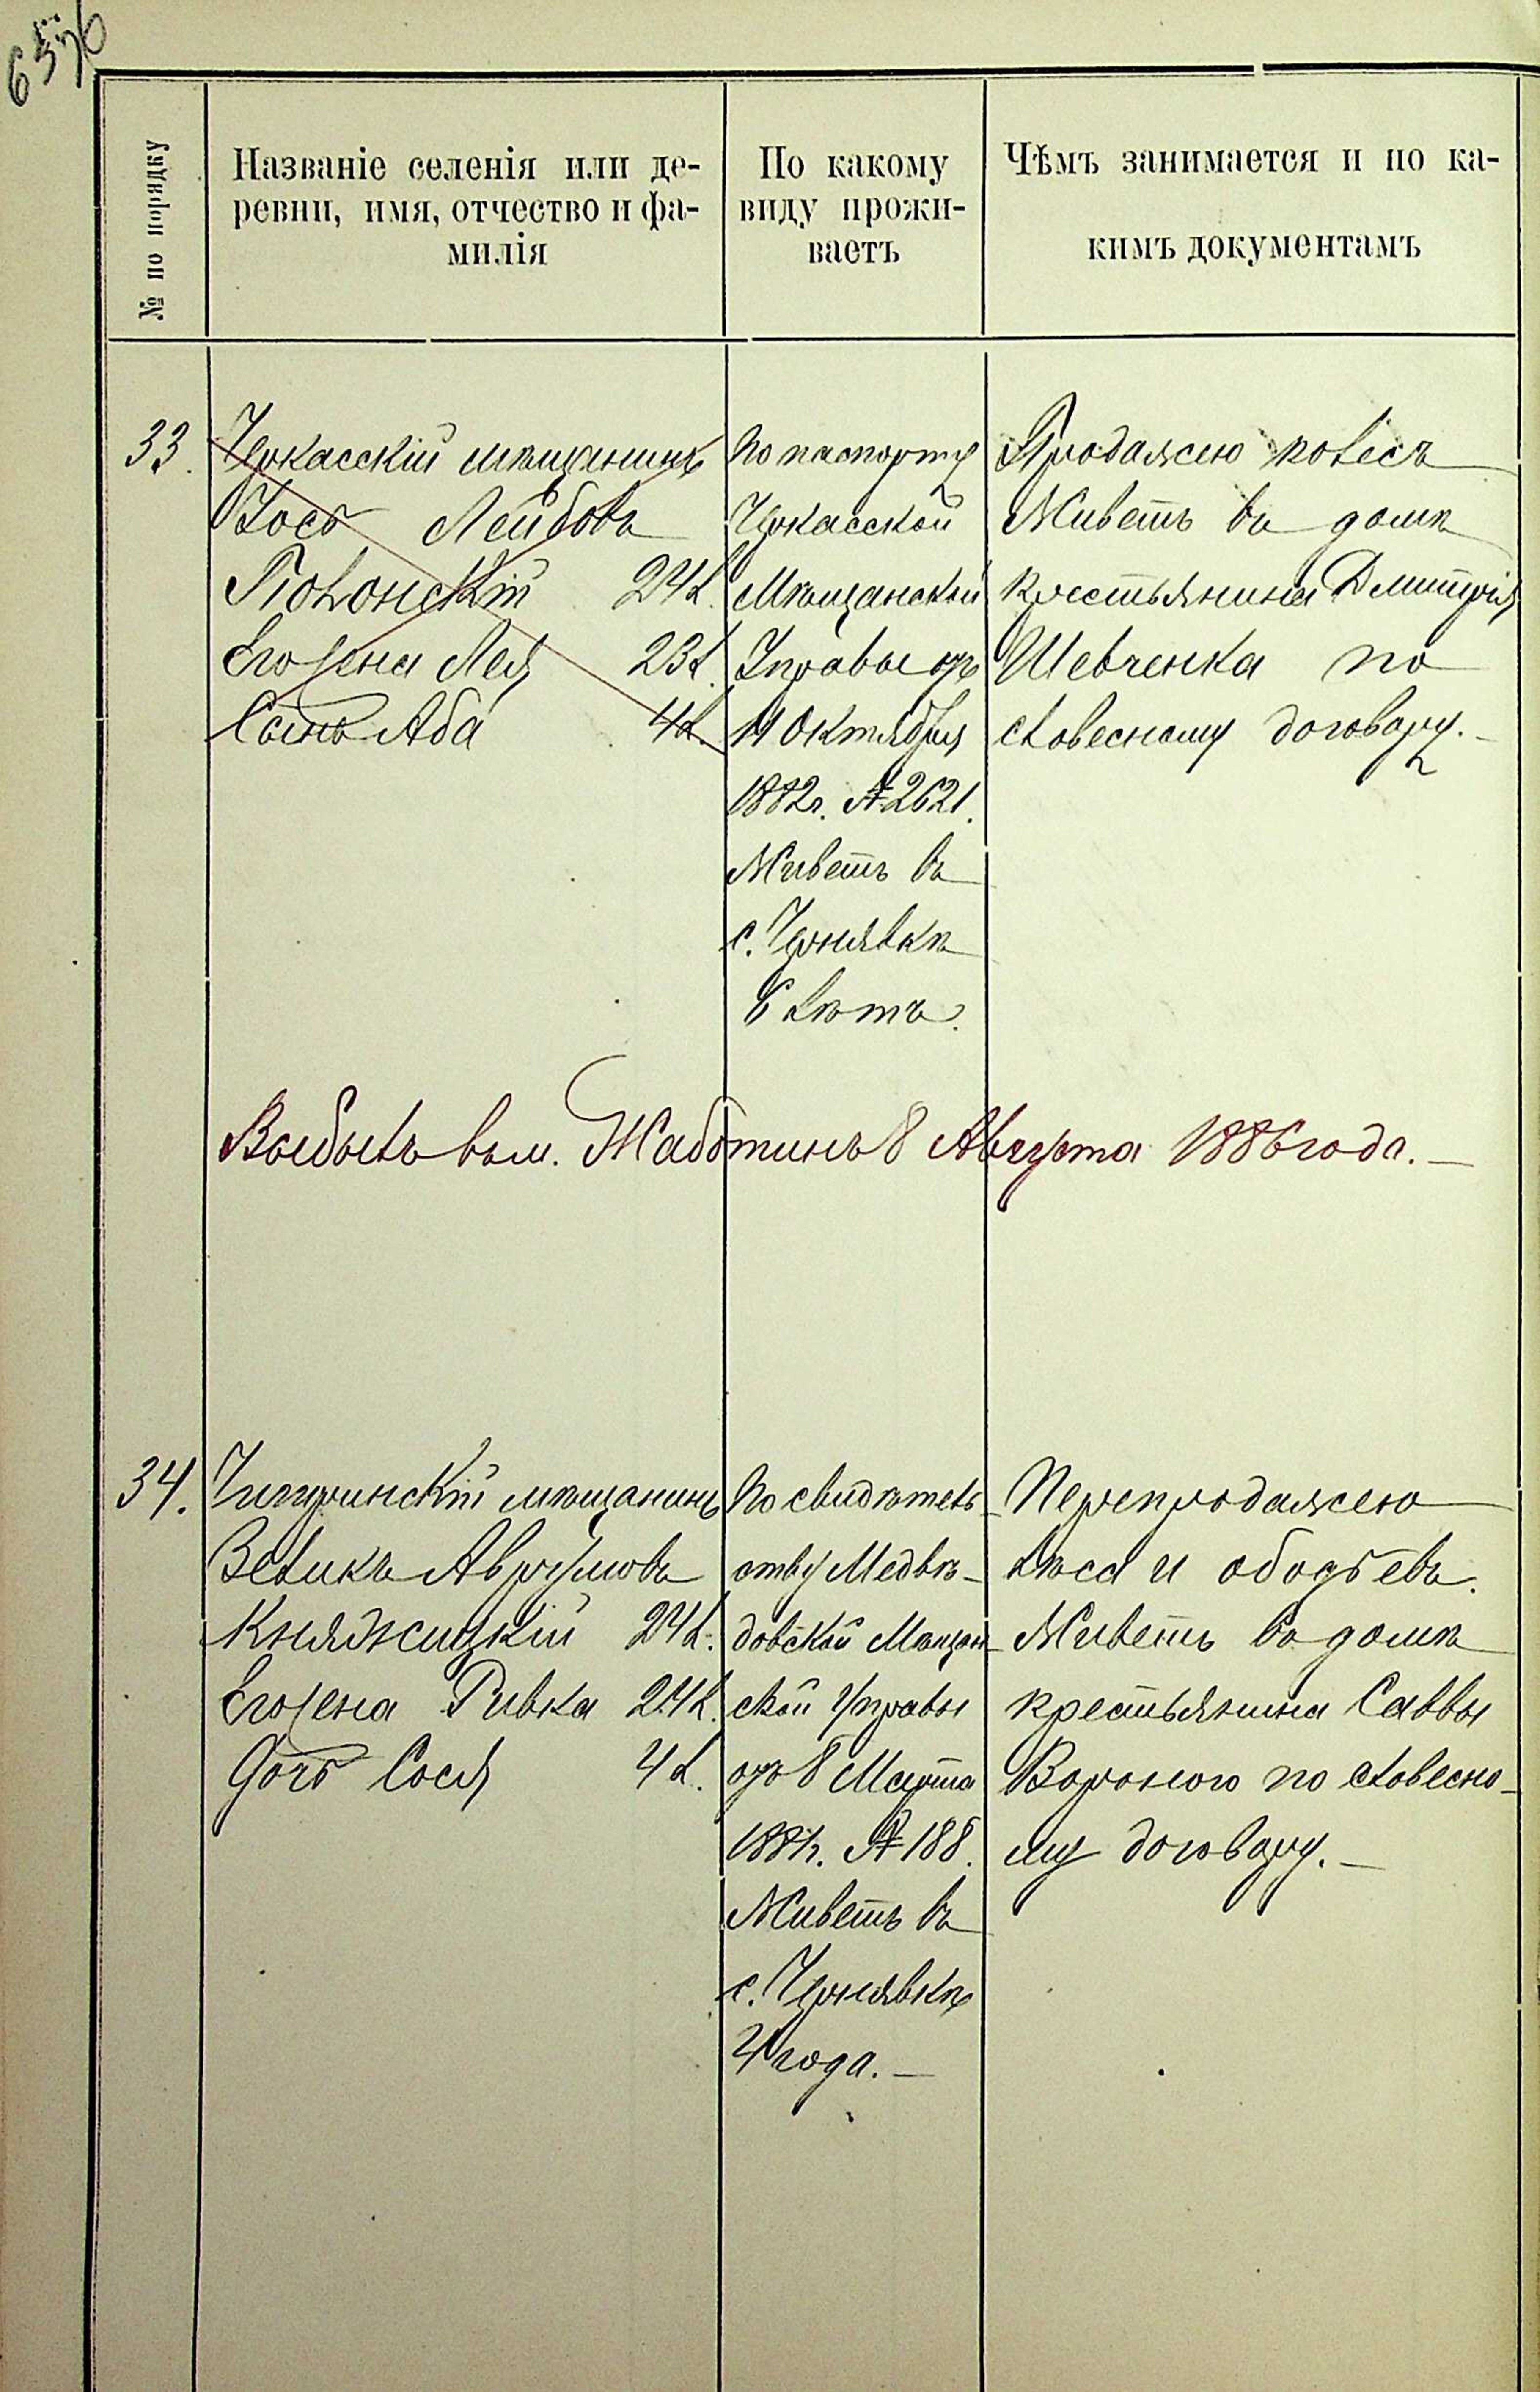 № по порядку
Названіе селенія или де-
ревни, имя, отчество и фа-
милія
По какому
виду прожи-
ваетъ
Чѣмъ занимается и по ка-
кимъ документамъ
33.
Черкасскій мѣщанинъ
Іось Лейбовъ
Полонскій 24 л.
Его жена Лея 23 л.
Сынъ Аба 4 л.
По паспорту
Черкасской
Мѣщанской
Управы отъ
11 Октября
1882 г. № 2621.
Живетъ въ
с. Чернявкѣ
6 лѣтъ.
Продажею колесъ
Живетъ въ домѣ
крестьянина Дмитрія
Шевченка по
словесному договору.—
Выбылъ въ м. Жаботинъ 8 Августа 1886 года.—
34.
Чигиринскій мѣщанинъ
Зеликъ Аврумовъ
Княжицкій 24 л.
Его жена Ривка 24 л.
Дочь Сося 4 л.
По свидѣтель-
ству Медвѣ-
довской Мѣщан-
ской Управы
отъ 8 Марта
№ 188.
Живетъ въ
с. Чернявкѣ
4 года.—
Перепродажею
лѣса и ободьевъ.
Живетъ въ домѣ
крестьянина Саввы
Вороного по словесно-
му договору.—